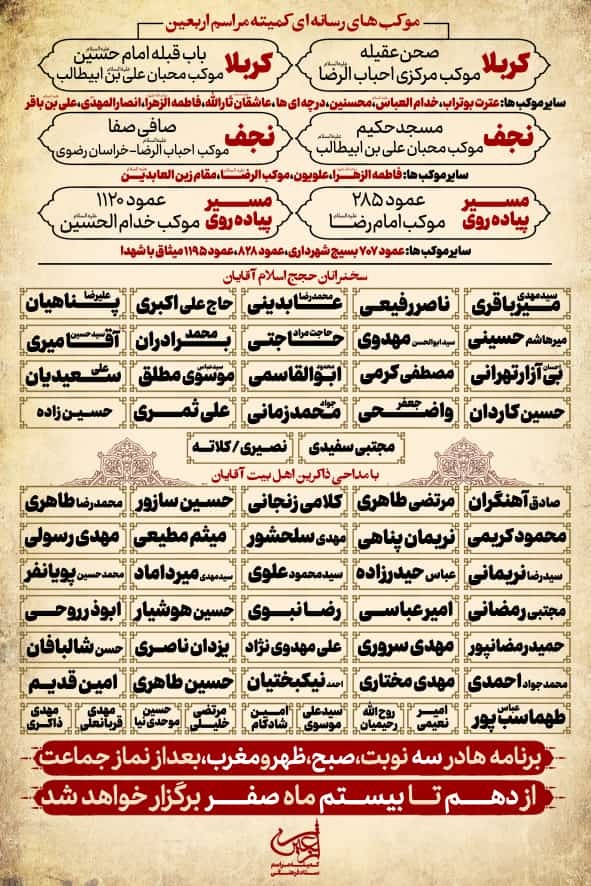 موکب های رسانه ای کمیته مراسم اربعین
کربلا صحن عقیله موکب مرکزی احباب الرضا علیه‌السلام
کربلا باب قبله امام حسین علیه‌السلام موکب محبان علی بن ابیطالب
سایر موکب ها: عترت بوتراب، خدام العباس، محسنین، درچه ای ها، عاشقان ثارالله، فاطمه الزهرا، انصار المهدی، علی بن باقر
نجف مسجد حکیم موکب محبان علی بن ابیطالب
نجف صافی صفا موکب احباب الرضا-خراسان رضوی
سایر موکب ها: فاطمه الزهرا، علویون، موکب الرضا، مقام زین العابدین
مسیر پیاده روی عمود ۲۸۵ موکب امام رضا
مسیر پیاده روی عمود ۱۱۲۰ موکب خدام الحسین
سایر موکب ها: عمود ۷۰۷ بسیج شهرداری، عمود ۸۲۸، عمود ۱۱۹۵ میثاق با شهدا
سخنرانان حجج اسلام آقایان
سیدمهدی میرباقری
ناصر رفیعی
محمدرضا عابدینی
حاج علی اکبری
علیرضا پناهیان
میرهاشم حسینی
سید ابوالحسن مهدوی
حاجت مراد حاجتی
محمد برادران
سید حسین آقامیری
احسان بی آزار تهرانی
مصطفی کرمی
محمود ابوالقاسمی
سیدعباس موسوی مطلق
علی سعیدیان
حسین کاردان
جعفر واضحی
جواد محمدزمانی
علی ثمری
حسین زاده
مجتبی سفیدی
نصیری / کلاته
با مداحی ذاکرین اهل بیت آقایان
صادق آهنگران
مرتضی طاهری
کلامی زنجانی
حسین سازور
محمدرضا طاهری
محمود کریمی
نریمان پناهی
مهدی سلحشور
میثم مطیعی
مهدی رسولی
سیدرضا نریمانی
عباس حیدرزاده
سیدمحمود علوی
سیدمهدی میرداماد
محمدحسین پویانفر
مجتبی رمضانی
امیر عباسی
رضا نبوی
حسین هوشیار
ابوذر روحی
حمید رمضانپور
مهدی سروری
علی مهدوی نژاد
یزدان ناصری
حسن شالبافان
محمدجواد احمدی
مهدی مختاری
احمد نیکبختیان
حسین طاهری
امین قدیم
عباس طهماسب پور
امیر نعیمی
روح الله رحیمیان
سیدعلی موسوی
امین شادکام
مرتضی خلیلی
حسین موحدی نیا
مهدی قربانعلی
مهدی ذاکری
برنامه ها در سه نوبت، صبح، ظهر و مغرب، بعد از نماز جماعت
از دهم تا بیستم ماه صفر برگزار خواهد شد
اربعین
کمیته مراسم
ستاد فرهنگی